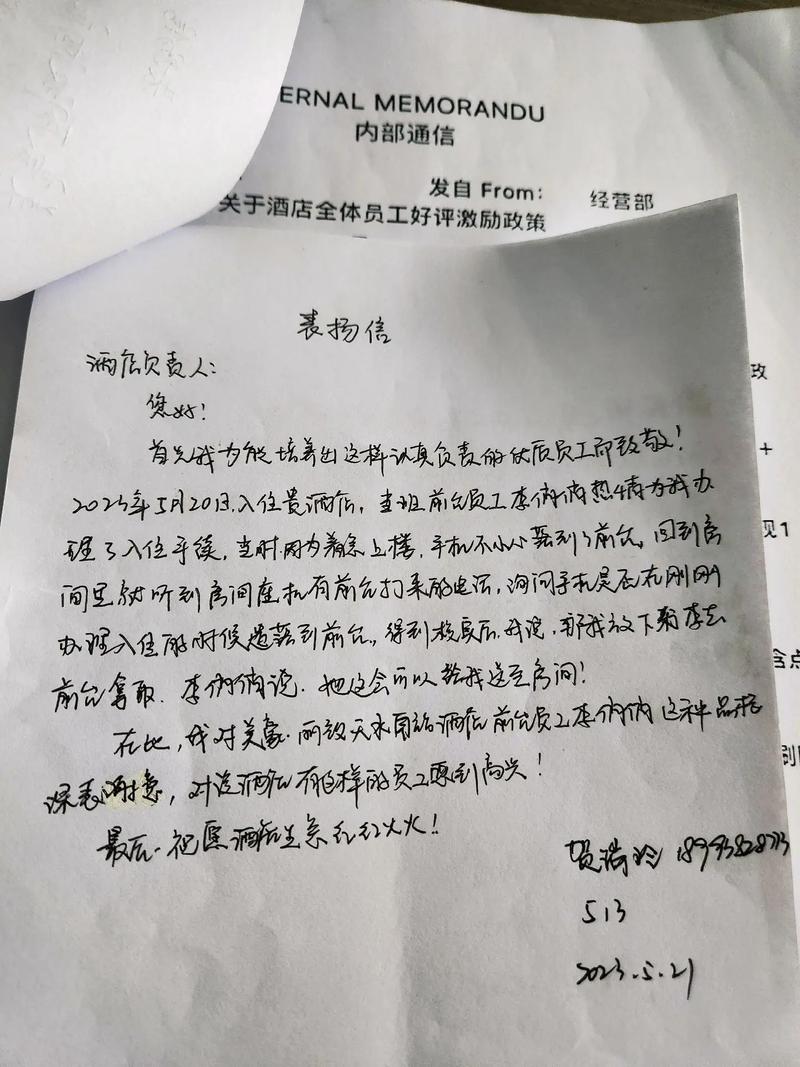 ERNAL MEMORANDU
内部通信
发自 From: 经营部
关于酒店全体员工好评激励政策
表扬信
酒店负责人:
您好!
首先我为能培养出这样认真负责的优质员工而致敬!
2023年5月20日,入住贵酒店,当班前台员工李俩俩热情为我办
理了入住手续,当时因为着急上楼,手机不小心落到了前台,回到房
间里就听到房间座机有前台打来的电话,询问手机是否在刚刚
办理入住的时候遗落到前台,得到核实后,我说,那我放下东西去
前台拿取,李俩俩说,她这会可以给我送至房间!
在此,我对美豪丽致天水酒店前台员工李俩俩这种品格
深表谢意,对酒店有这样的员工感到高兴!
最后,祝愿酒店生意红红火火!
贺瑞玲
513
2023.5.21
政
+
现1
含点